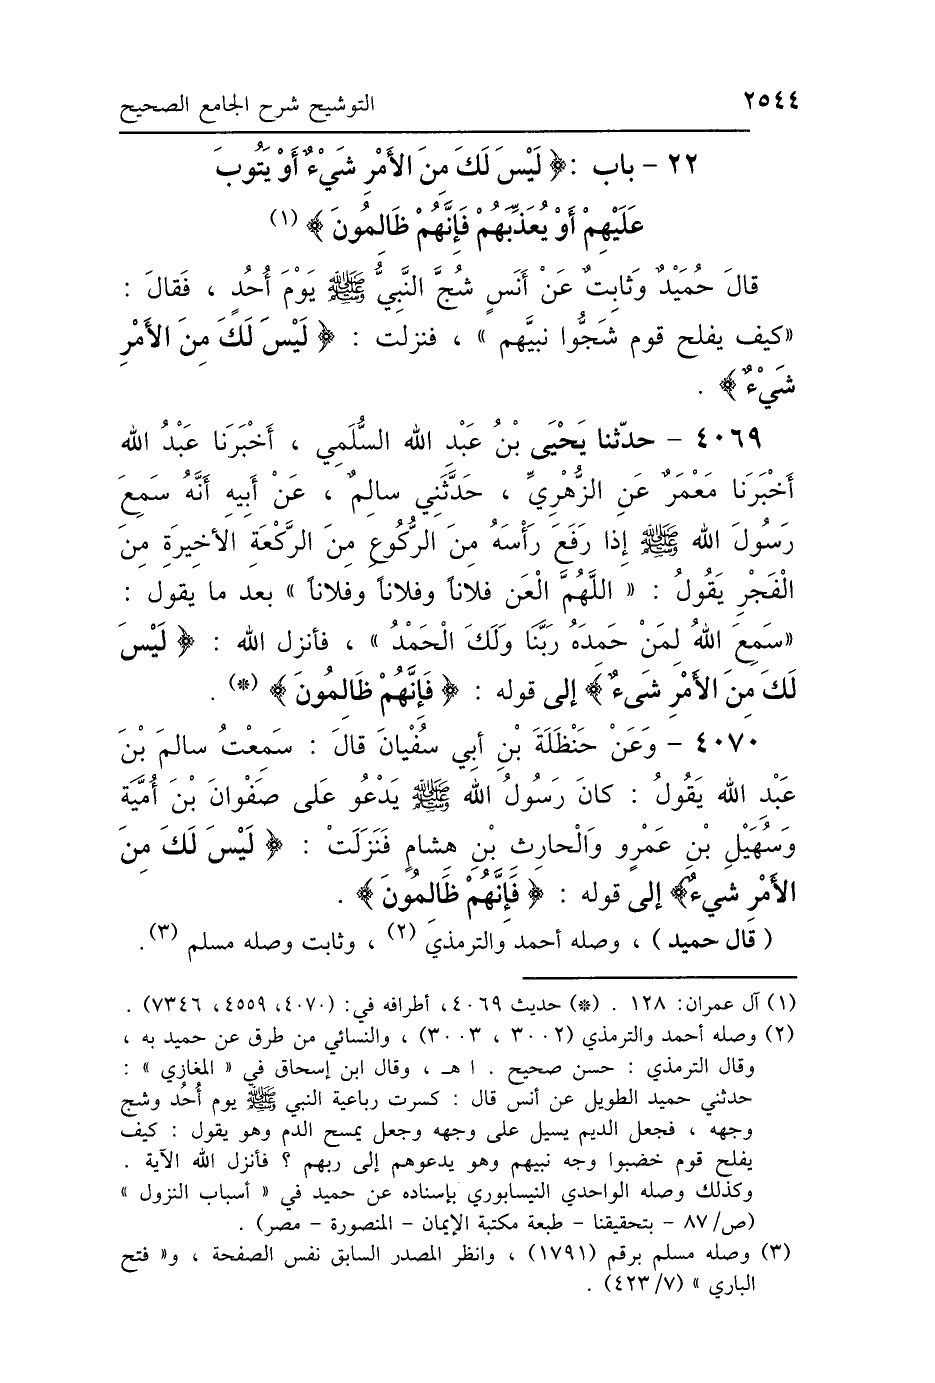 ٢٥٤٤ التوشيح شرح الجامع الصحيح
٢٢ - باب : ﴿ لَيْسَ لَكَ مِنَ الأَمْرِ شَيْءٌ أَوْ يَتُوبَ
عَلَيْهِمْ أَوْ يُعَذِّبَهُمْ فَإِنَّهُمْ ظَالِمُونَ ﴾ (١)
قالَ حُمَيْدٌ وَثابِتٌ عَنْ أَنَسٍ شُجَّ النَّبِيُّ ﷺ يَوْمَ أُحُدٍ ، فَقالَ :
«كيف يفلح قوم شَجُّوا نبيَّهم » ، فنزلت : ﴿ لَيْسَ لَكَ مِنَ الأَمْرِ
شَيْءٌ ﴾ .
٤٠٦٩ - حدّثنا يَحْيَى بْنُ عَبْدِ الله السُّلَمِي ، أَخْبَرَنا عَبْدُ الله
أَخْبَرَنا مَعْمَرٌ عَنِ الزُّهْرِيِّ ، حَدَّثَنِي سالِمٌ ، عَنْ أَبِيهِ أَنَّهُ سَمِعَ
رَسُولَ الله ﷺ إذا رَفَعَ رَأْسَهُ مِنَ الرُّكُوعِ مِنَ الرَّكْعَةِ الأخيرَةِ مِنَ
الْفَجْرِ يَقُولُ : « اللَّهُمَّ الْعَن فلاناً وفلاناً وفلاناً » بعد ما يقول :
«سَمِعَ اللهُ لِمَنْ حَمِدَهُ رَبَّنَا وَلَكَ الْحَمْدُ » ، فأنزل الله : ﴿ لَيْسَ
لَكَ مِنَ الأَمْرِ شَىءٌ ﴾ إلى قوله : ﴿ فَإِنَّهُمْ ظَالِمُونَ ﴾ (*) .
٤٠٧٠ - وَعَنْ حَنْظَلَةَ بْنِ أَبي سُفْيانَ قالَ : سَمِعْتُ سالِمَ بْنَ
عَبْدِ الله يَقُولُ : كانَ رَسُولُ الله ﷺ يَدْعُو عَلى صَفْوانَ بْنَ أُمَّيةَ
وَسُهَيْلِ بْنِ عَمْرٍو وَالْحارِثِ بْنِ هِشامٍ فَنَزَلَتْ : ﴿ لَيْسَ لَكَ مِنَ
الأَمْرِ شَيءٌ﴾ إلى قوله : ﴿ فَإِنَّهُمْ ظَالِمُونَ ﴾ .
( قال حميد ) ، وصله أحمد والترمذي (٢) ، وثابت وصله مسلم (٣) .
(١) آل عمران: ١٢٨ . (*) حديث ٤٠٦٩، أطرافه في: (٤٠٧٠، ٤٥٥٩، ٧٣٤٦) .
(٢) وصله أحمد والترمذي (٣٠٠٢ ، ٣٠٠٣) ، والنسائي من طرق عن حميد به ،
وقال الترمذي : حسن صحيح . ا هـ ، وقال ابن إسحاق في « المغازي » :
حدثني حميد الطويل عن أنس قال : كسرت رباعية النبي ﷺ يوم أُحُد وشج
وجهه ، فجعل الديم يسيل على وجهه وجعل يمسح الدم وهو يقول : كيف
يفلح قوم خضبوا وجه نبيهم وهو يدعوهم إلى ربهم ؟ فأنزل الله الآية .
وكذلك وصله الواحدي النيسابوري بإسناده عن حميد في « أسباب النزول »
(ص/ ٨٧ - بتحقيقنا - طبعة مكتبة الإيمان - المنصورة - مصر) .
(٣) وصله مسلم برقم (١٧٩١) ، وانظر المصدر السابق نفس الصفحة ، و« فتح
الباري » (٧/ ٤٢٣) .